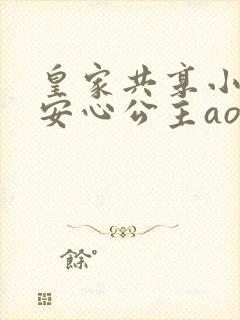 皇家共享小
安心公主ao
餘